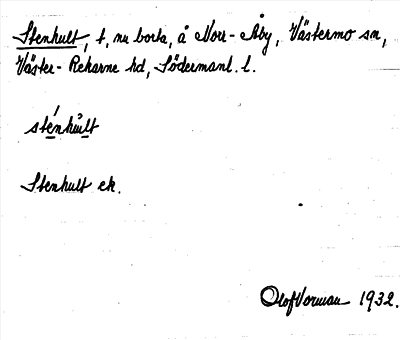 Stenhult, t, nu borta, å Norr-Åby, Västermo sn,
Väster-Rekarne hd, Södermanl. l.
sténhùlt
Stenhult ek.
Olof Vorman 1932.